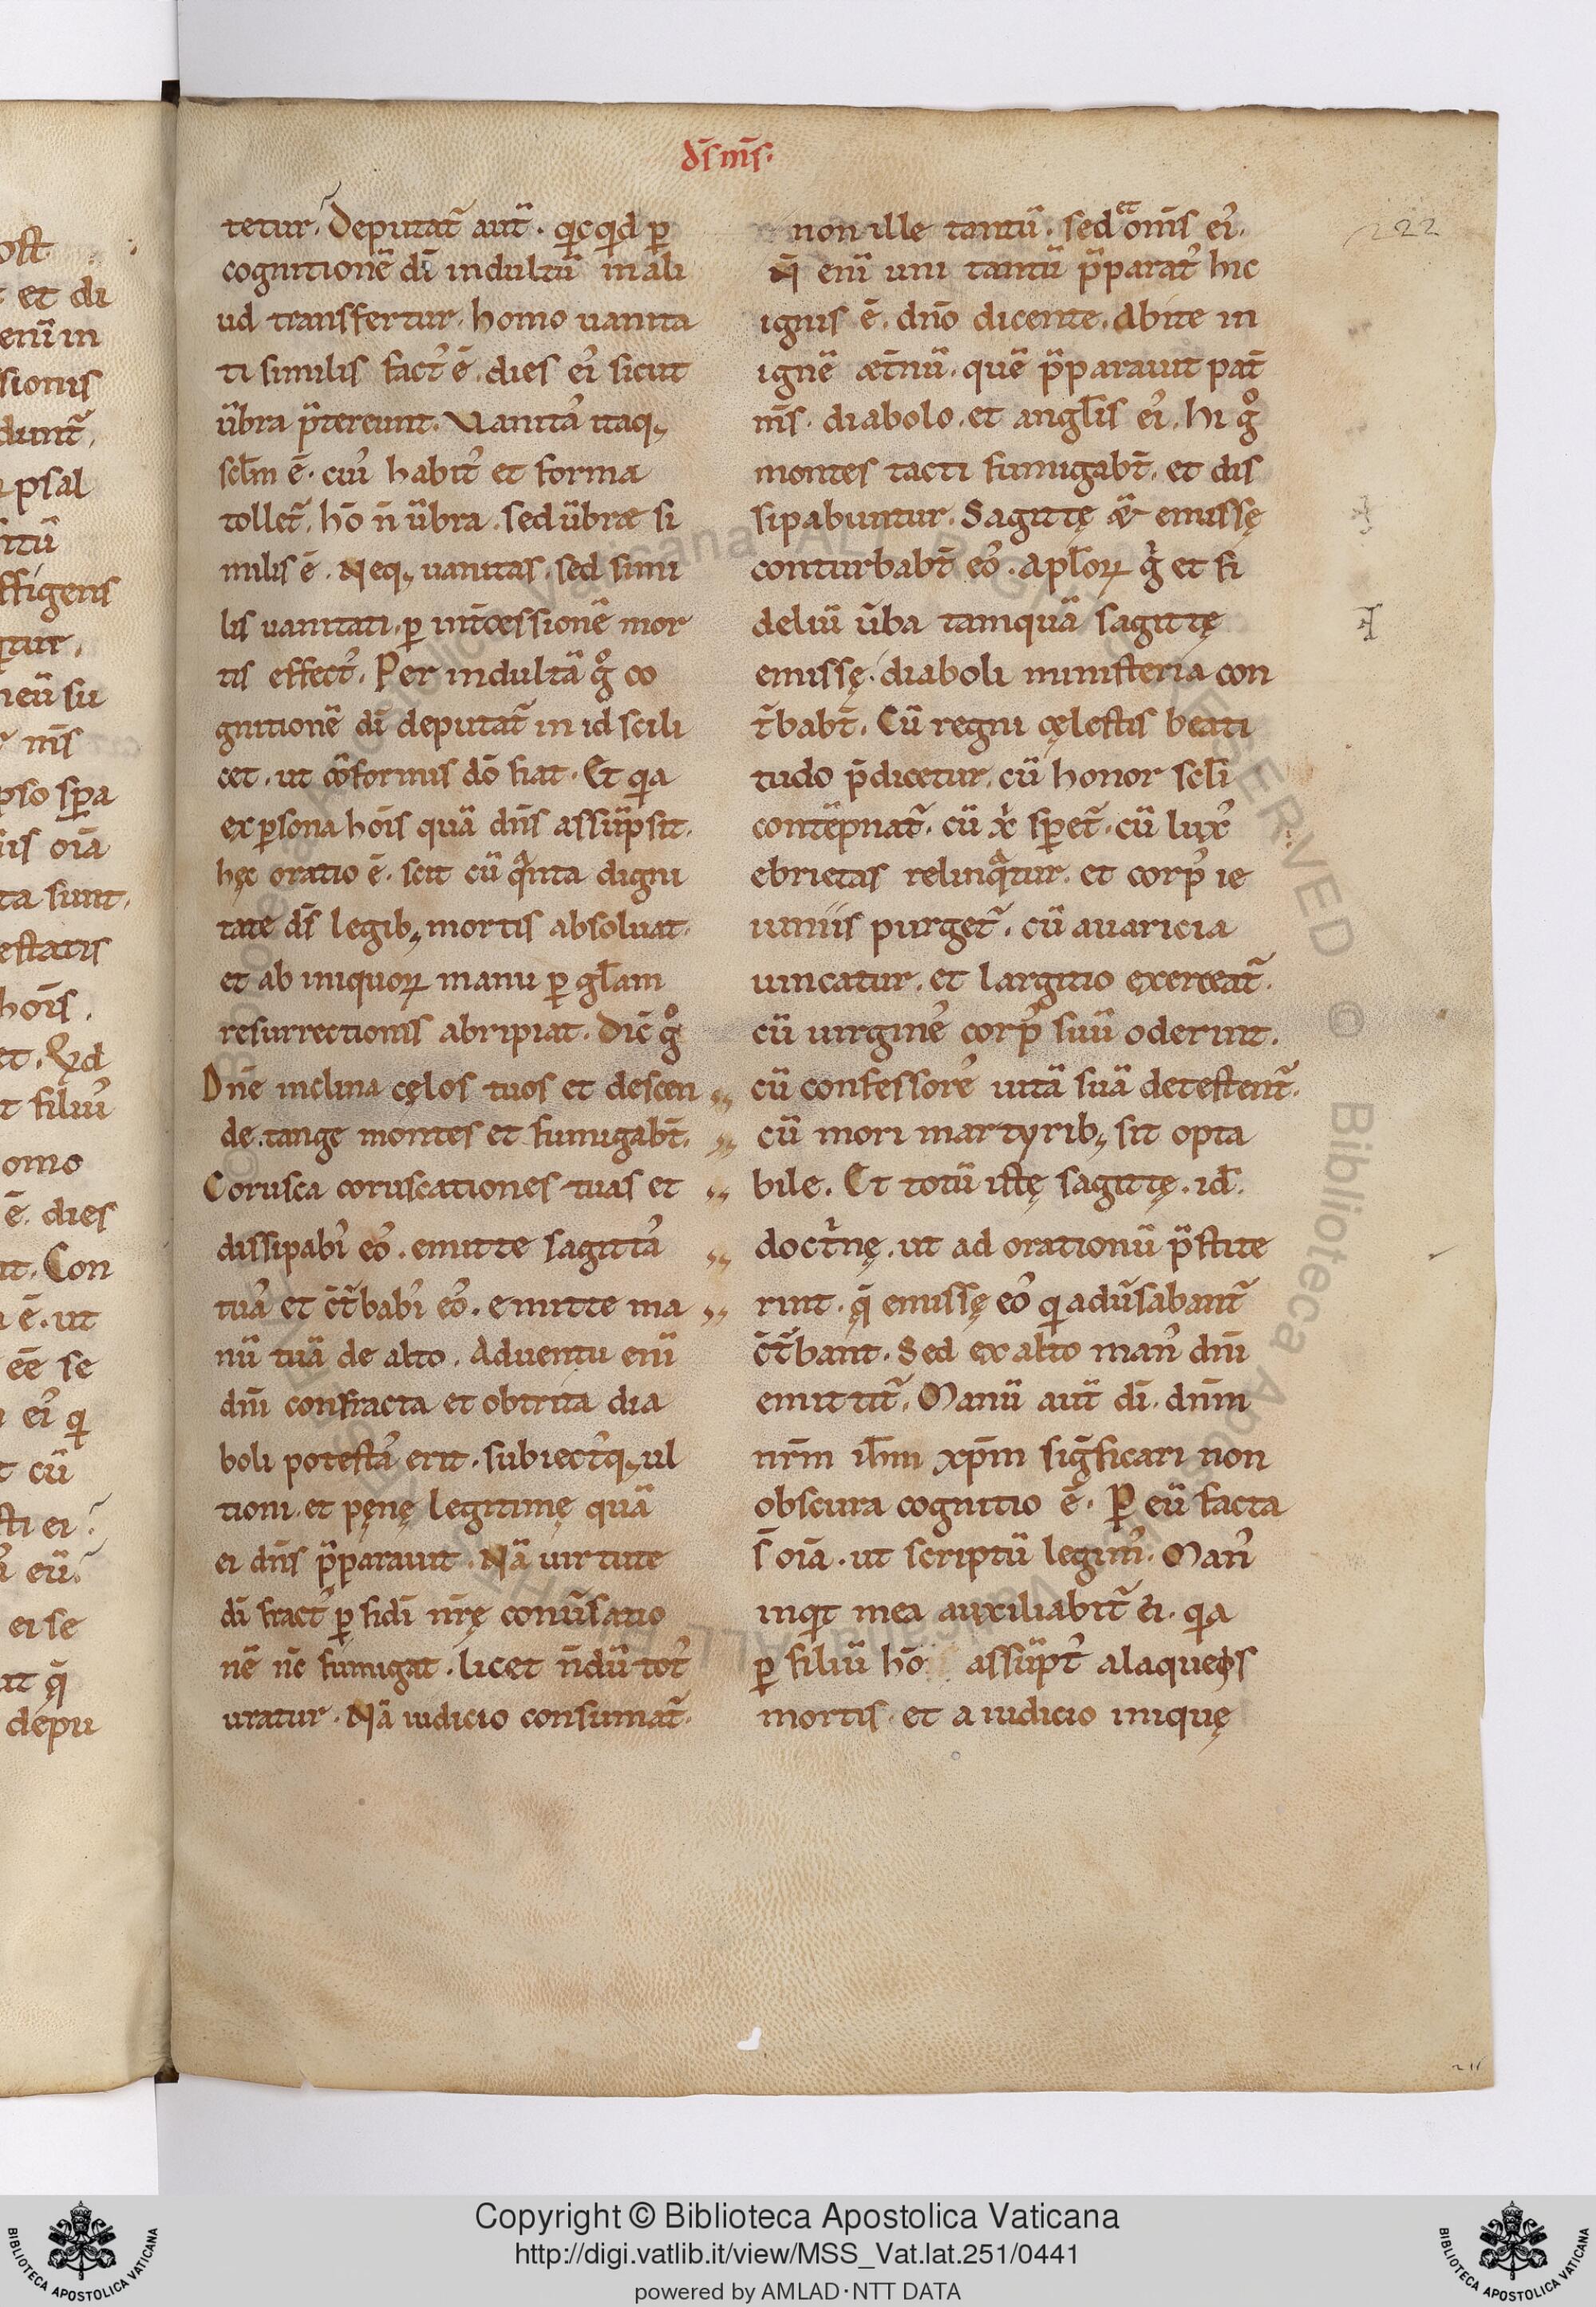 d̄s m̄s.
222
tetur. Deputat᷑ aut̄. qicqid ꝑ
cognitionē dī indultū in ali
ud transfertur. homo uanita
ti similis factꝰ ē. dies eiꝰ sicut
ūbra p̄tereunt. Vanitaꝰ itaq;
sclm̄ ē. cuiꝰ habitꝰ et forma
tollet᷑. hō n̄ ūbra. sed ūbræ si
milis ē. Neq; uanitas. sed simi
lis uanitati. ꝑ int̄cessionē mor
tis effectꝰ. Per indultā gͦ co
gnitionē dī deputat᷑ in id scili
cet. ut cōformis dō fiat. Et qia
ex ꝑsona hoīs quā dn̄s assūpsit.
hęc oratio ē. scit cū qͣnta digni
tate d̄s legib; mortis absoluat.
et ab iniquoꝝ manu ꝑ gl̄am
resurrectionis abripiat. Dic̄ gͦ
Dn̄e inclina cęlos tuos et descen
de. tange montes et fumigabt̄.
Corusca coruscationes tuas et
dissipabiꝰ eoꝰ. emitte sagittaꝰ
tuaꝰ et c̄t᷑babiꝰ eoꝰ. emitte ma
nū tuā de alto. Aduentu enī
dn̄i confracta et obtrita dia
boli potestaꝰ erit. subiectꝰq; ul
tioni. et pęnę legitimę quā
ei dn̄s p̄parauit. Nā uirtute
dī fractꝰ ꝑ fidī nr̄ę conūsatio
nē nc̄ fumigat. licet n̄dū totꝰ
uratur. Nā iudicio consumat᷑.
non ille tantū. sed et om̄s eiꝰ.
N̄ enī uni tantū p̄paratꝰ hic
ignis ē. dn̄o dicente. Abite in
ignē æt̄nū. quē p̄parauit pat̄
m̄s. diabolo. et angl̄is eiꝰ. hi gͦ
montes tacti fumigabt̄. et dis
sipabuntur. Sagittę æ emissę
conturbabt̄ eoꝰ. Apl̄oꝝ gͥ et fi
deliū ūba tamquā sagittę
emissę. diaboli ministeria con
t᷑babt̄. Cū regni cęlestis beati
tudo p̄dicetur. cū honor scl̄i
contēpnat᷑. cū xͥ spet᷑. cū luxꝰ
ebrietas relinqͣtur. et corpꝰ ie
iuniis purget᷑. cū auaricia
uincatur. et largitio exerceat᷑.
cū uirgineꝰ corpꝰ suū oderint.
cū confessoreꝰ uitā suā detestent᷑.
cū mori martyrib; sit opta
bile. Et totū istę sagittę. id̄.
doctͥnę. ut ad orationū p̄stite
rint. q̄ emissę eoꝰ qi adūsabant᷑
c̄t᷑bant. Sed ex alto manꝰ dn̄i
emittit᷑. Manū aut̄ dī. dn̄m
nr̄m ih̄m xp̄m siḡficari non
obscura cognitio ē. Ꝑ eū facta
s̄ oīa. ut scriptū legimꝰ. Manꝰ
inqit mea auxiliabit᷑ ei. qia
ꝑ filiū hō assūptꝰ a laqueos
mortis. et a iudicio iniquę
Copyright © Biblioteca Apostolica Vaticana
http://digi.vatlib.it/view/MSS_Vat.lat.251/0441
powered by AMLAD·NTT DATA
BIBLIOTECA APOSTOLICA VATICANA
BIBLIOTECA APOSTOLICA VATICANA